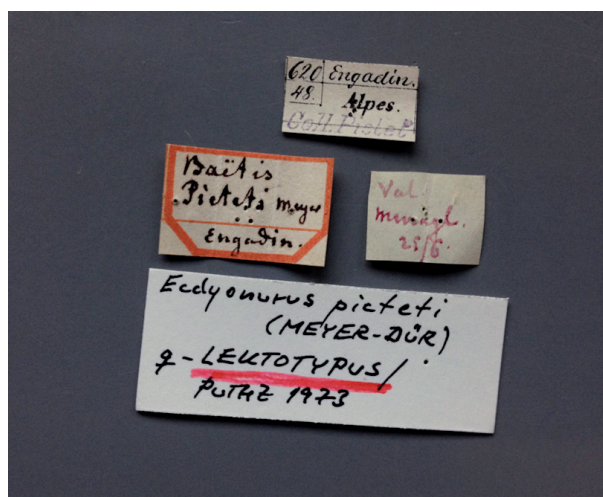 620 Engadin.
48. Alpes.
Coll. Pictet
Baëtis
Picteti Meyer
Engadin.
Val
25/6.
Ecdyonurus picteti
(MEYER-DÜR)
LEKTOTYPUS/
PUTHZ 1973